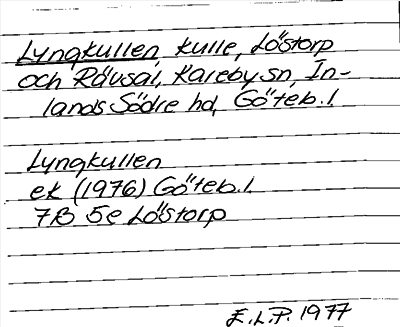 Lyngkullen, kulle, Löstorp
och Rävsal, Kareby sn, In-
lands Södre hd, Göteb. l.
Lyngkullen
ek (1976) Göteb. l.
7B 5e Löstorp
E.L.P. 1977